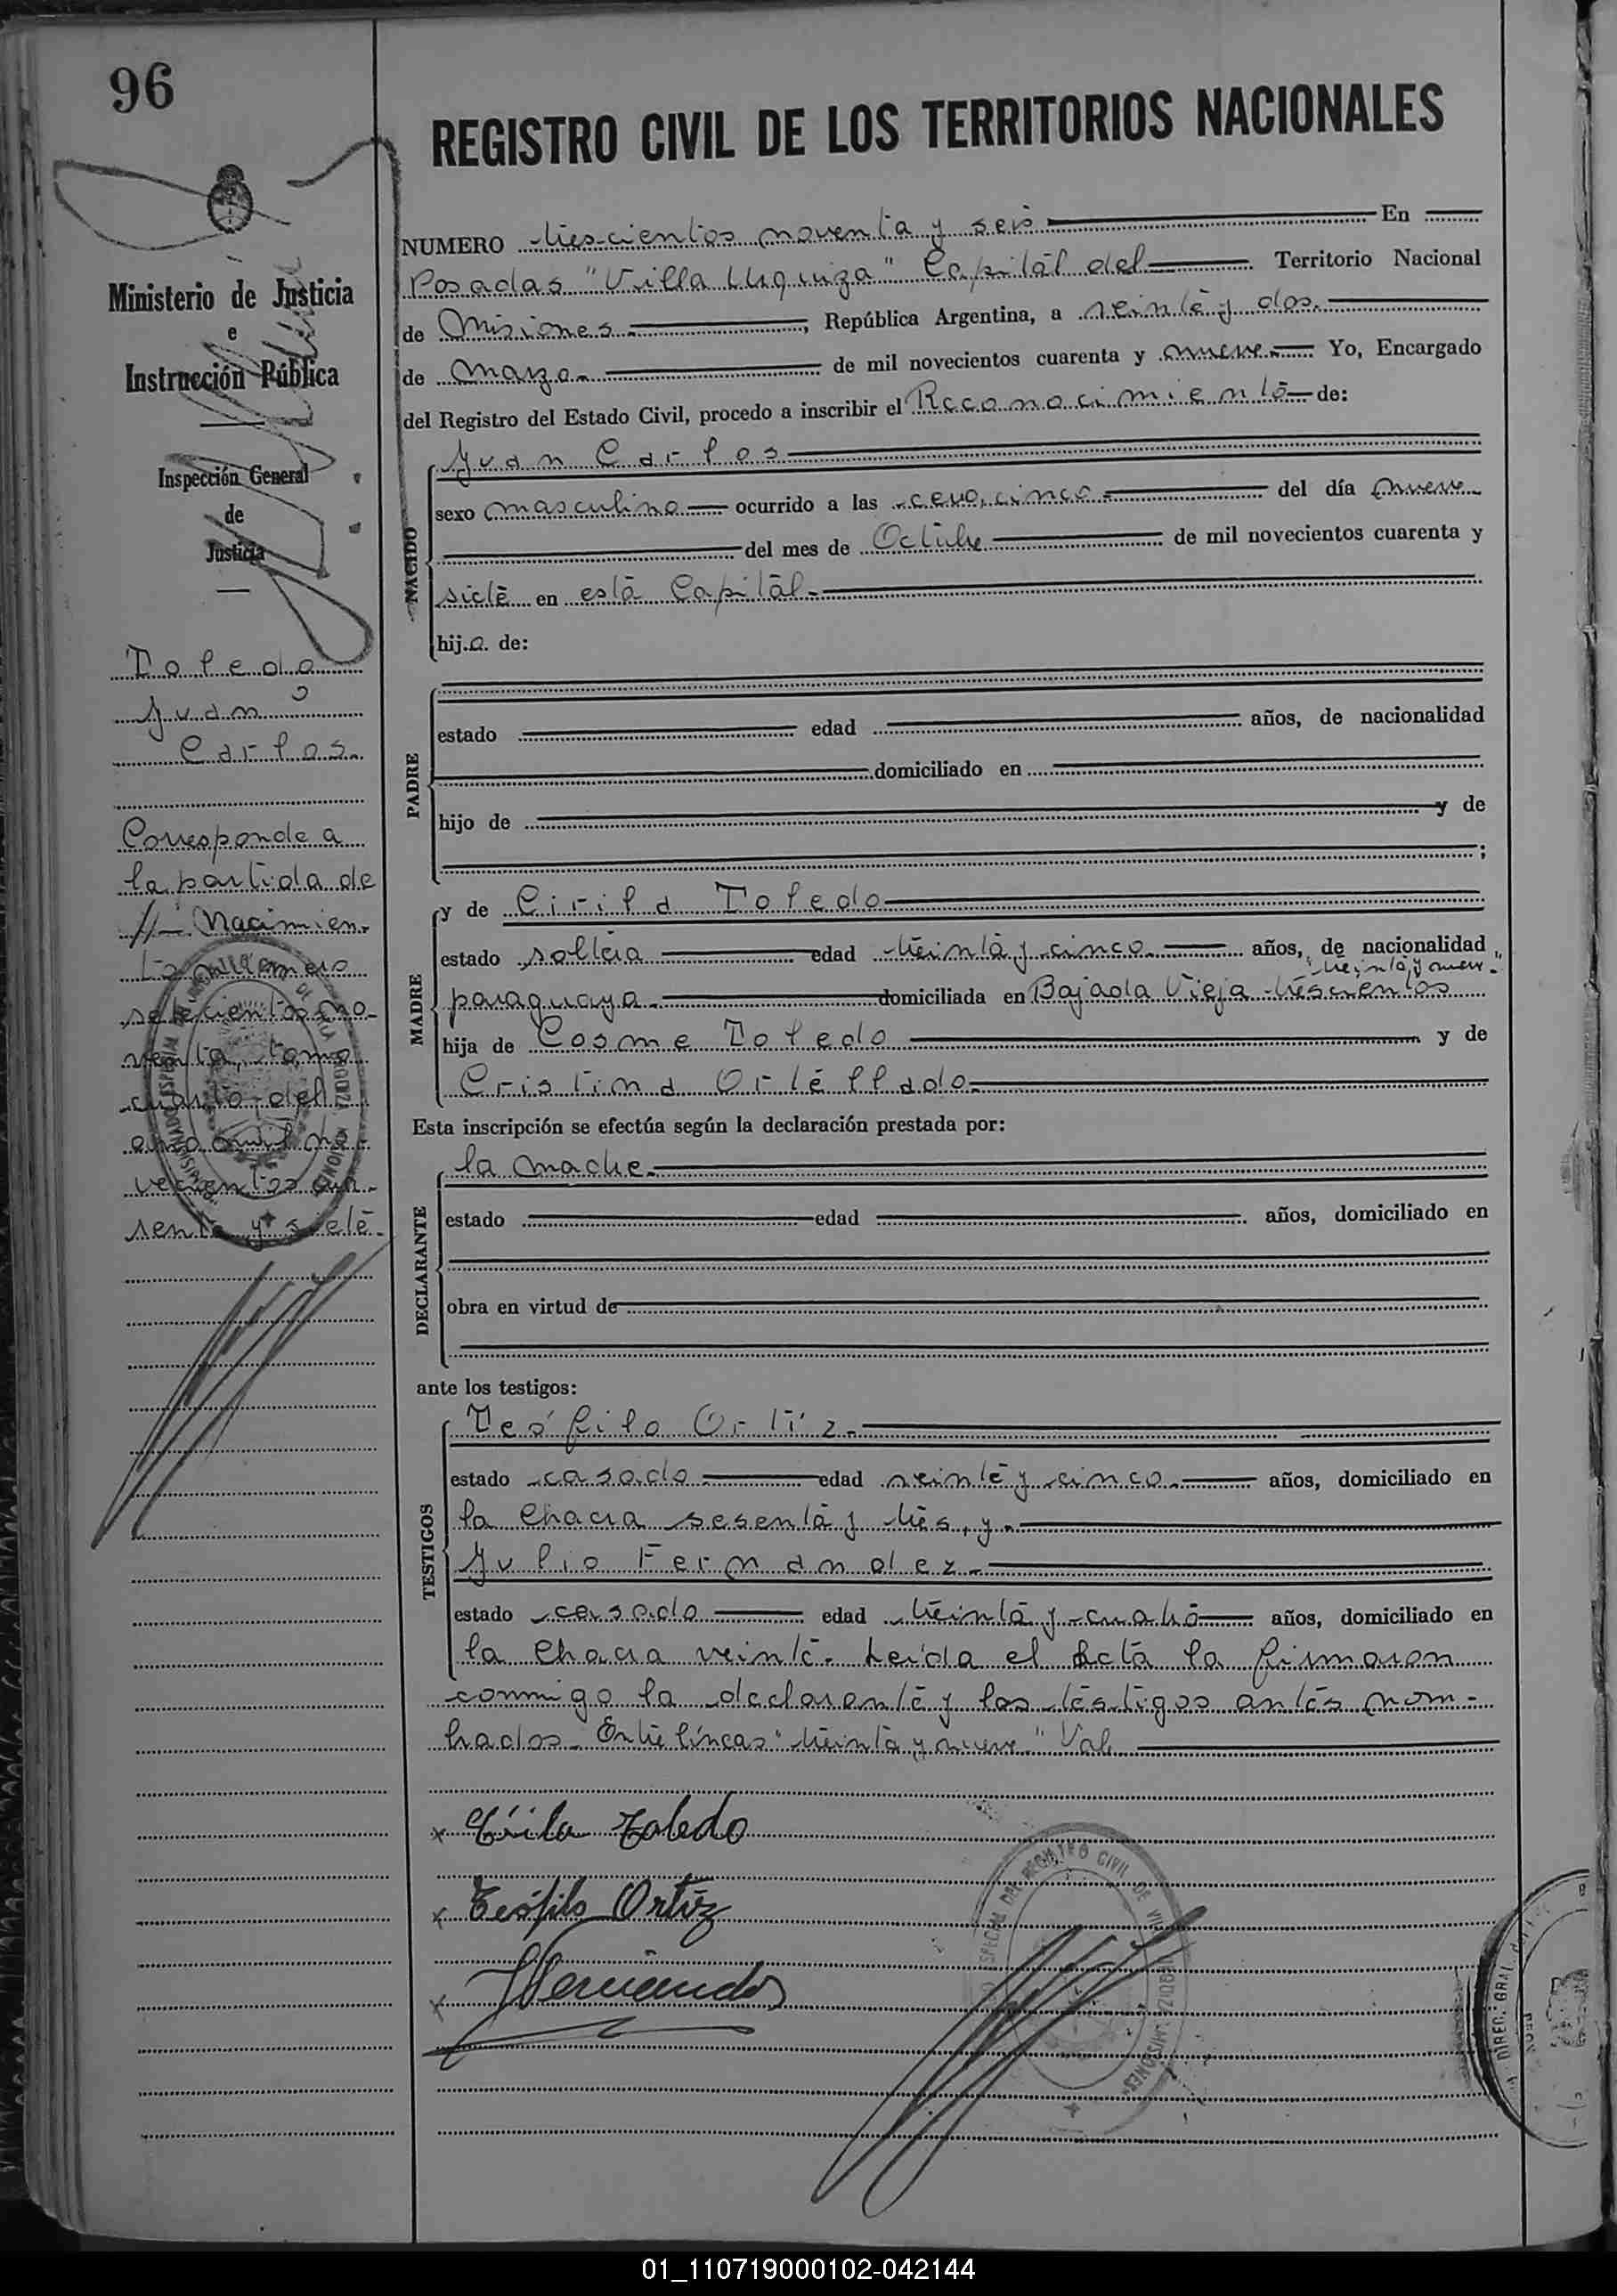 96
REGISTRO CIVIL DE LOS TERRITORIOS NACIONALES
Ministerio de Justicia
e
Instrucción Pública
Inspección General
de
Justicia
Toledo
Juan
Carlos.
Corresponde a
la partida de
//- Nacimien-
to número
setecientos no-
venta, tomo
cuarto del
año mil no-
vecientos cua-
renta y siete.
NUMERO trescientos noventa y seis En
Posadas "Villa Urquiza" Capital del Territorio Nacional
de Misiones.-, República Argentina, a veinte y dos.
de Marzo.- de mil novecientos cuarenta y nueve.- Yo, Encargado
del Registro del Estado Civil, procedo a inscribir el Reconocimiento de:
NACIDO
Juan Carlos
sexo masculino ocurrido a las cero, cinco del día nueve
del mes de Octubre de mil novecientos cuarenta y
siete en esta Capital.-
hij.o. de:
PADRE
estado edad años, de nacionalidad
domiciliado en
hijo de y de
;
MADRE
y de Cirila Toledo
estado soltera edad treinta y cinco años, de nacionalidad
treinta y nueve
paraguaya.- domiciliada en Bajada Vieja trescientos
hija de Cosme Toledo y de
Cristina Ortellado.-
Esta inscripción se efectúa según la declaración prestada por:
DECLARANTE
la madre.-
estado edad años, domiciliado en
obra en virtud de
ante los testigos:
TESTIGOS
Teófilo Ortíz.-
estado casado edad veinte y cinco.- años, domiciliado en
la Chacra sesenta y tres, y.-
Julio Fernandez.-
estado casado edad treinta y cuatro años, domiciliado en
la Chacra veinte. Leída el Acta la firmaron
conmigo la declarante y los testigos antes nom-
brados. Entre líneas "treinta y nueve" Vale
x Cirila Toledo
x Teófilo Ortíz
x JFernandez
01_110719000102-042144